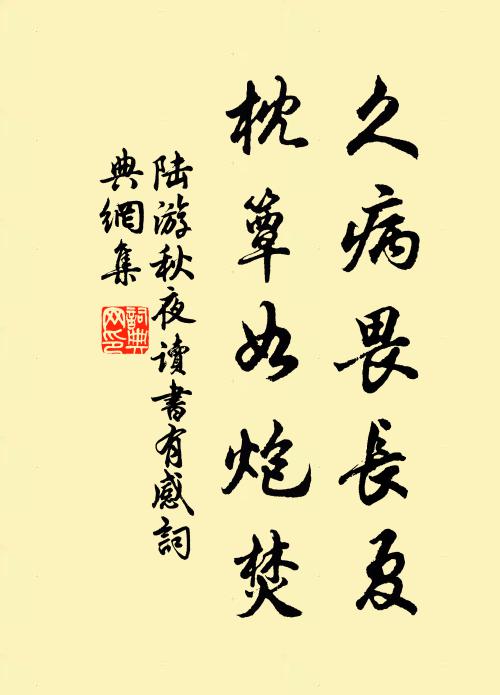 久病畏長夏
枕簟如炮焚
陆游秋夜讀書有感詞
典網集
詞典
网印